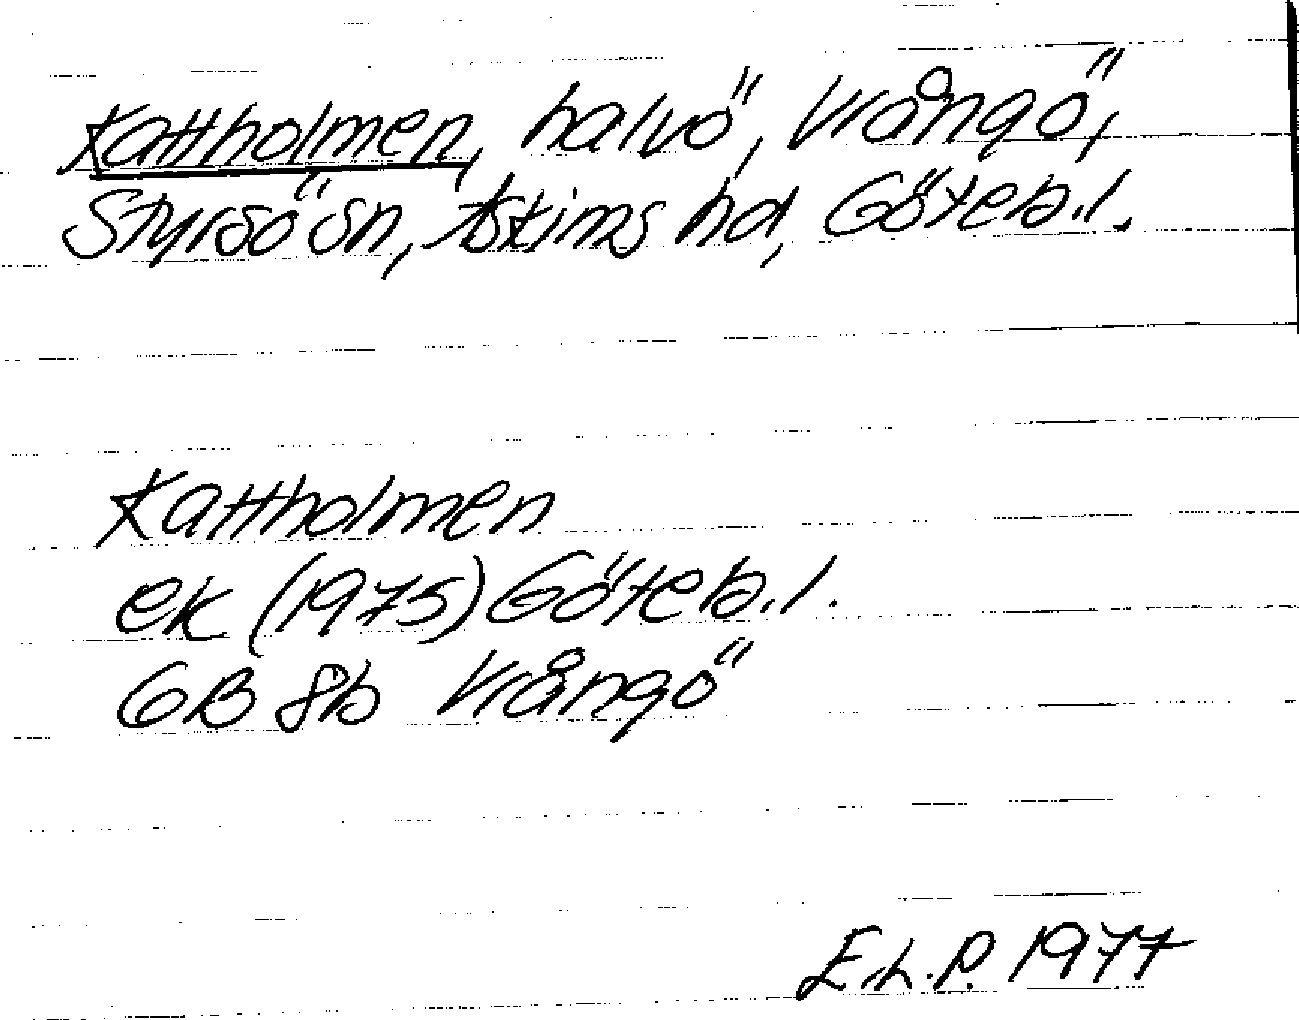 Kattholmen, halvö, Vrångö,
Styrsö sn, Askims hd, Göteb.l.
Kattholmen
ek (1975) Göteb.l.
6B 8b Vrångö
E.L.P. 1977